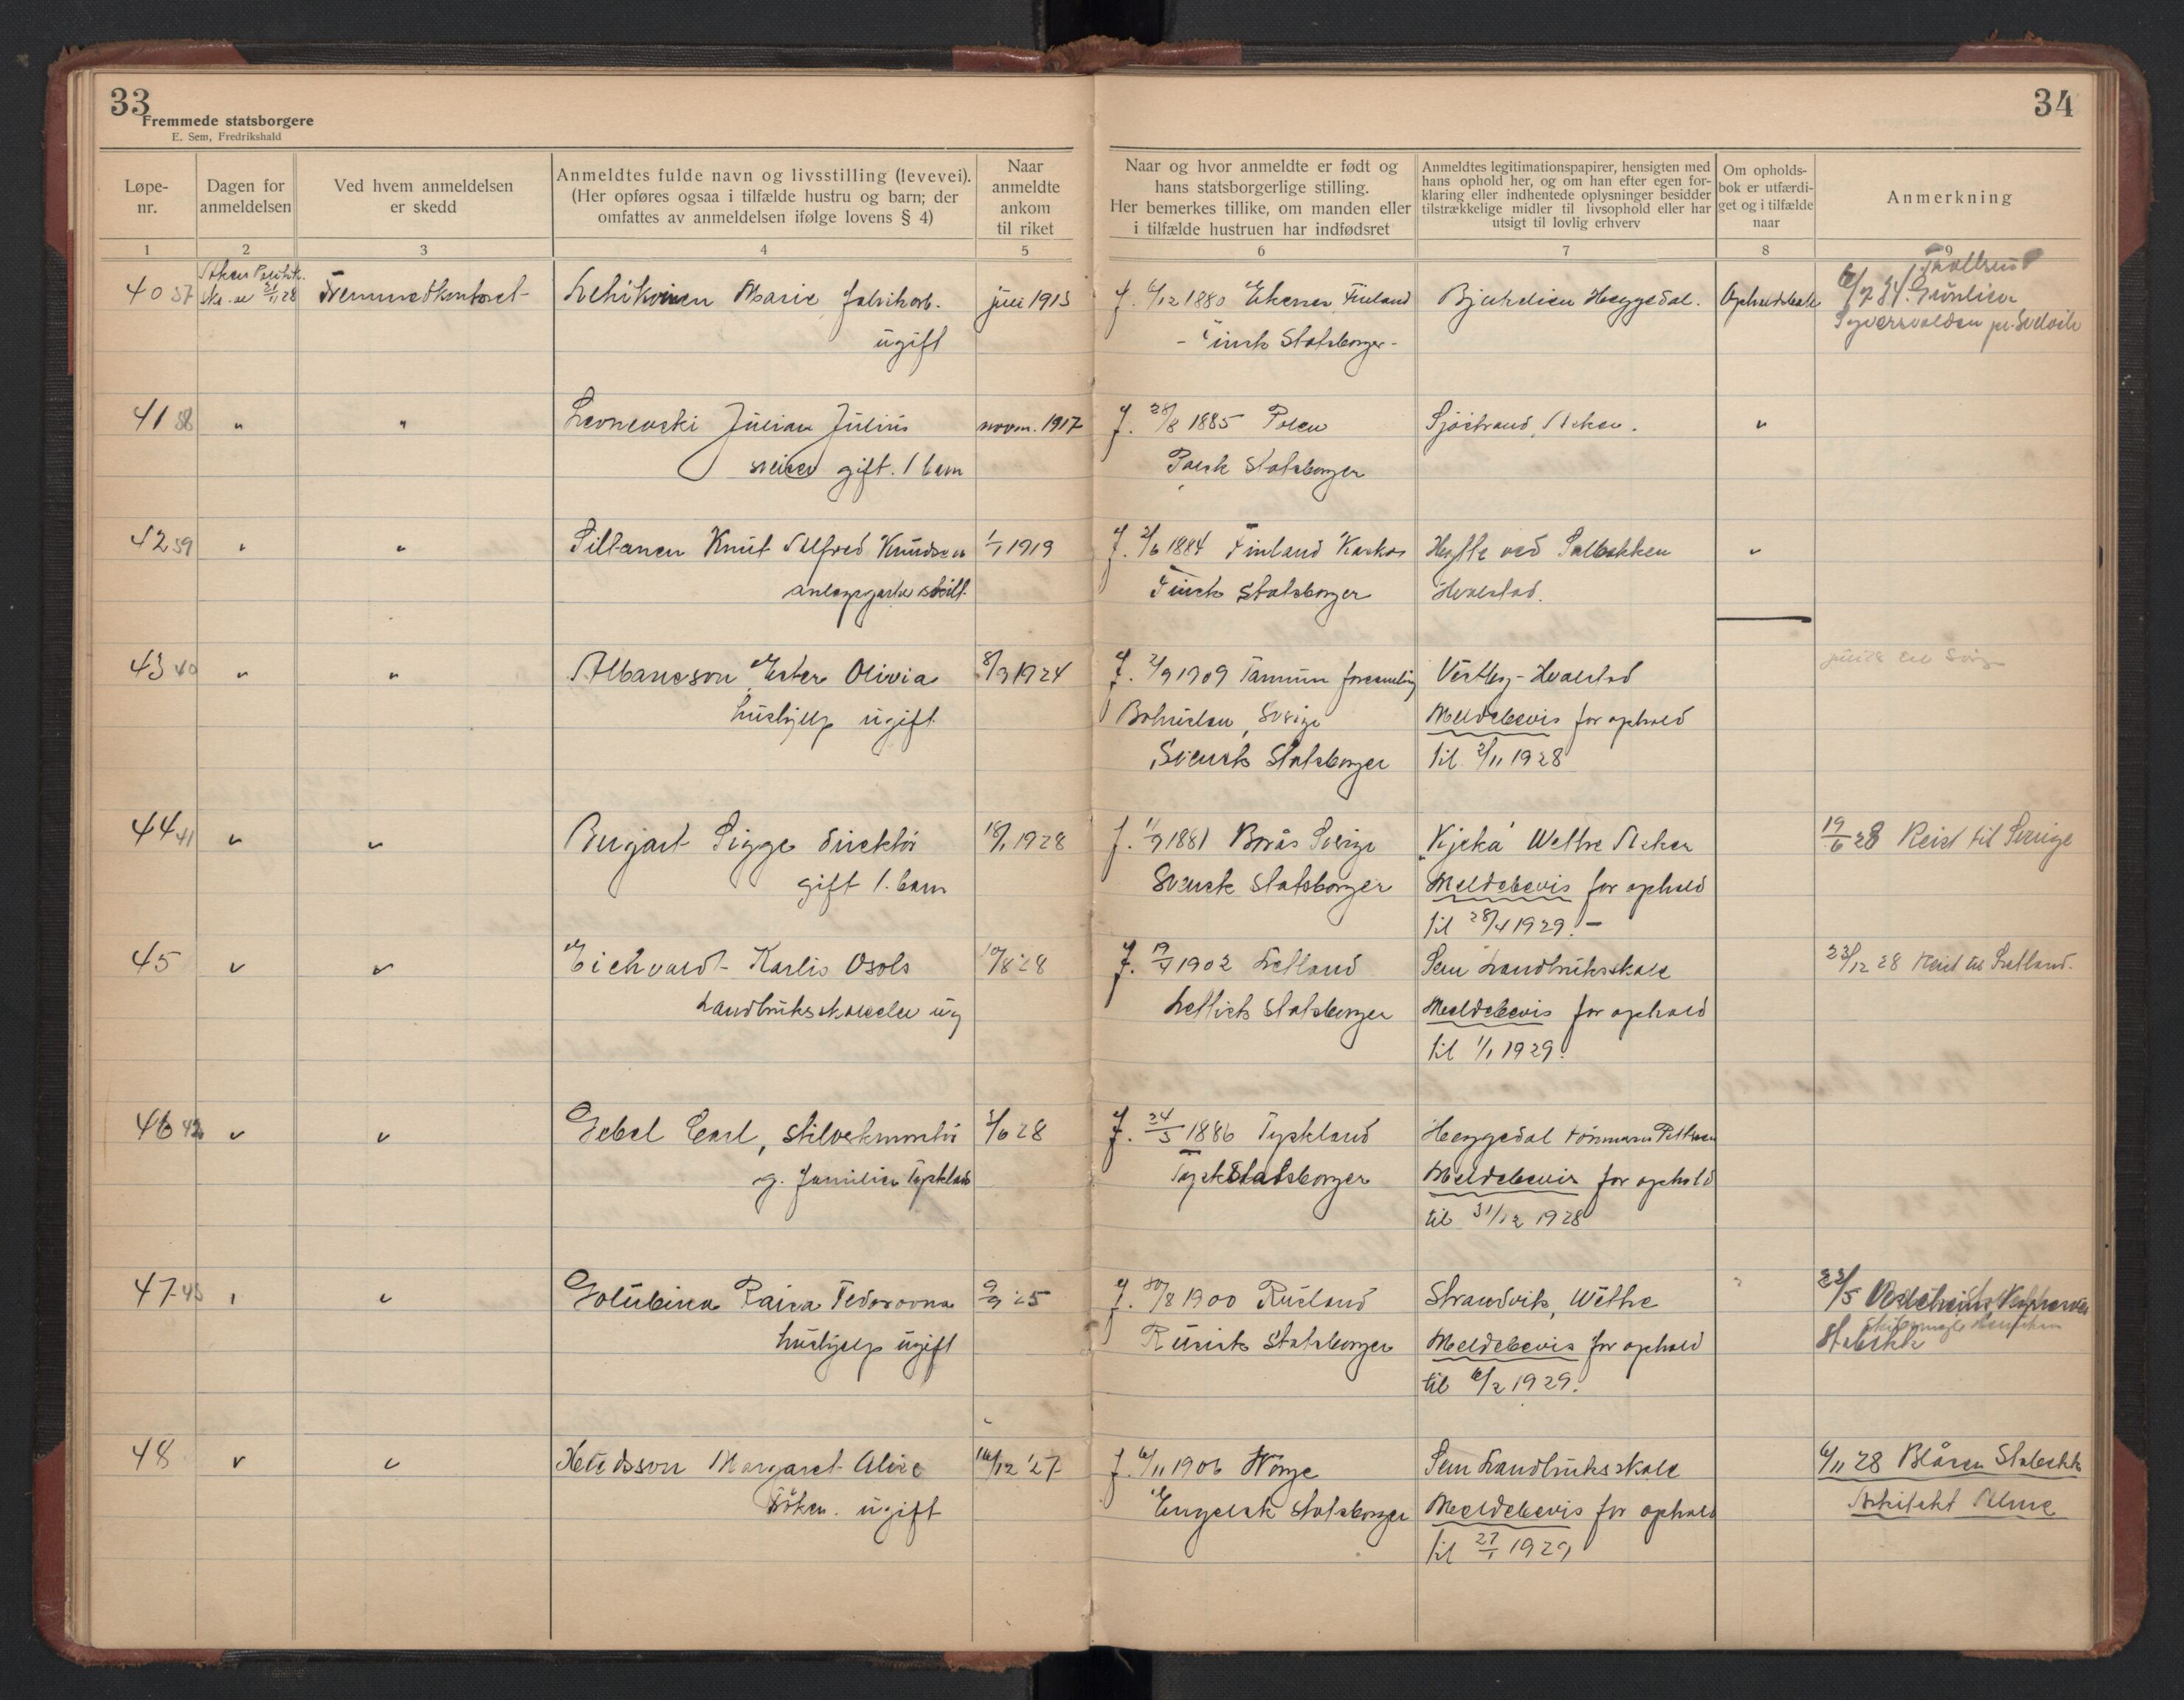 33
Fremmede statsborgere
E. Sem, Fredrikshald
34
Løpe-
nr.
Dagen for
anmeldelsen
Ved hvem anmeldelsen
er skedd
Anmeldtes fulde navn og livsstilling (levevei).
(Her opføres ogsaa i tilfælde hustru og barn; der
omfattes av anmeldelsen ifølge lovens § 4)
Naar
anmeldte
ankom
til riket
Naar og hvor anmeldte er født og
hans statsborgerlige stilling.
Her bemerkes tillike, om manden eller
i tilfælde hustruen har indfødsret
Anmeldtes legitimationspapirer, hensigten med
hans ophold her, og om han efter egen for-
klaring eller indhentede oplysninger besidder
tilstrækkelige midler til livsophold eller har
utsigt til lovlig erhverv
Om opholds-
bok er utfærdi-
get og i tilfælde
naar
Anmerkning
1 2 3 4 5 6 7 8 9
40 37 Fremmedkontoret Lehikoinen Marie fabrikarb. juli 1913 f. 6/12 1880 Ekenes Finland Heggedal. Opholdsbok 6/7 34 Grønlien
ugift
- Finsk Statsborger -
41 38 " " Julian Julius novm. 1917 f. 28/8 1885 Polen Sjöstrand, Asker. "
sveiser gift. 1 barn
Polsk Statsborger
42 39 " " Siltanen Knut Alfred Knudsen 1/1 1919 f. 2/6 1884 Finland Kaskø Hytte ved Solbakken "
skilt
Finsk Statsborger
Hvalstad.
43 40 " " Albanson Ester Olivia 8/9 1924 f. 2/9 1909 Tannum forsamling Vestby - Hvalstad
hushjelp ugift
Bohuslen, Sverige
Meldebevis for ophold
Svensk Statsborger
til 2/11 1928
44 41 " " Bergart Sigge direktør 18/1 1928 f. 11/9 1881 Borås Sverige "Kjeka" Wettre Asker 19/6 28 Reist til Sverige
gift 1. barn
Svensk Statsborger
Meldebevis for ophold
til 28/4 1929. -
45 " " Eichvald Karlis Osols 10/8 28 f. 19/4 1902 Letland Sem Landbruksskole 23/12 28 Reist til Letland.
Landbruksskoleelev ug
Lettisk Statsborger
Meldebevis for ophold
til 1/1 1929.
46 42 " " Gebel Carl, 3/6 28 f. 24/5 1886 Tyskland Heggedal
g. familien Tyskland
Tysk Statsborger
Meldebevis for ophold
til 31/12 1928
47 43 " " Golubina Raisa Fedorovna 9/9 25 f. 30/8 1900 Rusland Strandvik, Wettre " 22/5
hushjelp ugift
Russisk Statsborger
Meldebevis for ophold
Stabekk
til 6/2 1929.
48 " " Hendsson Margaret Alice 16/12 '27 f. 6/11 1906 Norge Sem Landbruksskole 6/11 28 Blåsen Stabekk
frøken. ugift
Engelsk Statsborger
Meldebevis for ophold
Arkitekt
til 27/1 1929